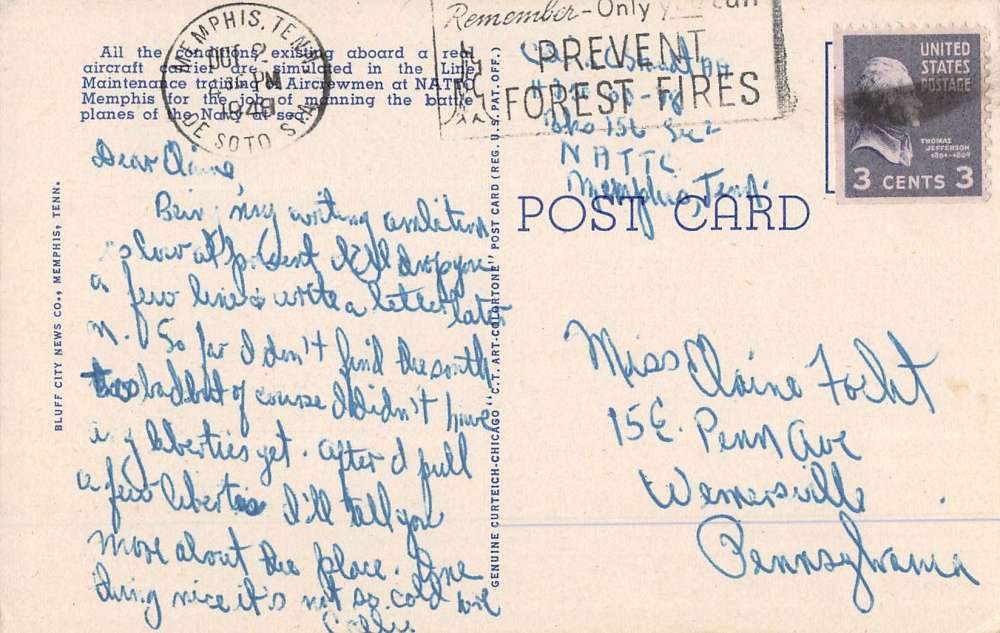 All the conditions existing aboard a real
aircraft carrier are simulated in the Line
Maintenance training of Aircrewmen at NATTC
Memphis for the job of manning the battle
planes of the Navy at sea.
MEMPHIS, TENN.
OCT 2
PM
1948
DE SOTO STA.
Remember-Only you can
PREVENT
FOREST FIRES
UNITED
STATES
POSTAGE
THOMAS
JEFFERSON
1801-1809
3 CENTS 3
Sec 2
NATTC
Memphis Tenn.
POST CARD
BLUFF CITY NEWS CO., MEMPHIS, TENN.
GENUINE CURTEICH-CHICAGO "C.T. ART-COLORTONE" POST CARD (REG. U.S. PAT. OFF.)
Dear Claine,
Being my writing ambition
is low at present I'll drop you
a few lines & write a letter later
on. So far I don't find the south
too bad but of course I didn't have
any liberties yet. After I pull
a few liberties I'll tell you
more about the place. One
thing nice it's not so cold
Miss Claine Focht
15 E. Penn Ave
Wernersville
Pennsylvania